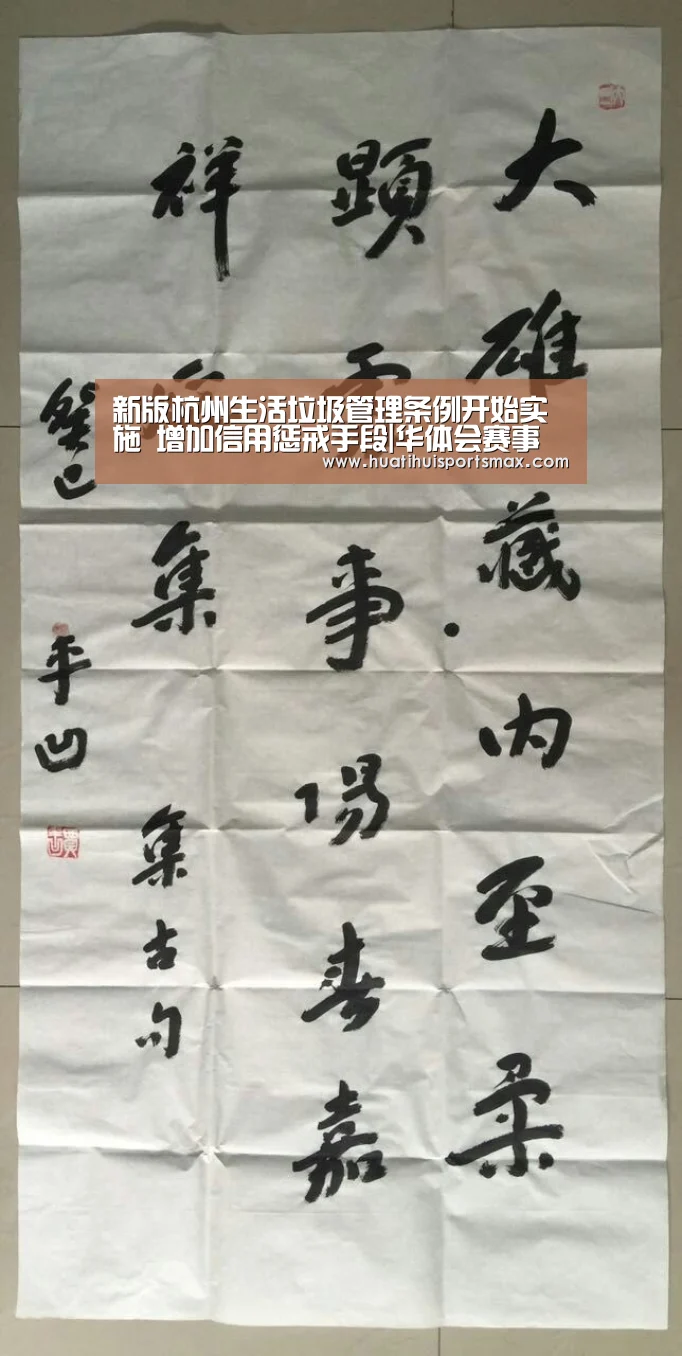 大雄藏内至柔
顕事春嘉
祥集 集古句
癸巳 平凹
新版杭州生活垃圾管理条例开始实
施 增加信用惩戒手段|华体会赛事
www.huatihuisportsmax.com